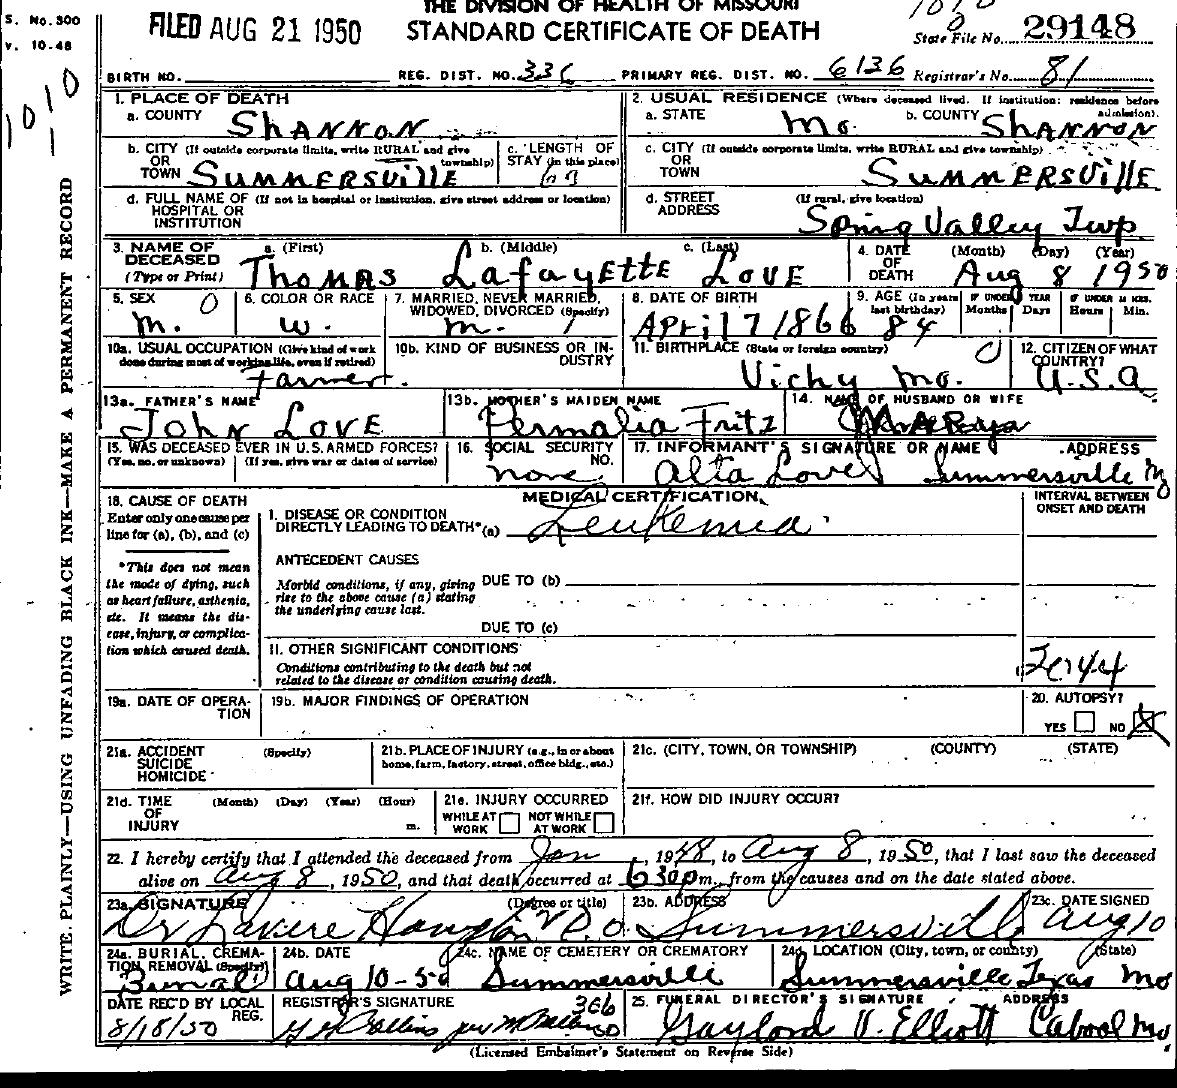 THE DIVISION OF HEALTH OF MISSOURI
S. No. 300
v. 10-48
FILED AUG 21 1950
STANDARD CERTIFICATE OF DEATH
State File No. 29148
1010
BIRTH NO. REG. DIST. NO. 336 PRIMARY REG. DIST. NO. 6136 Registrar's No. 81
WRITE PLAINLY—USING UNFADING BLACK INK—MAKE A PERMANENT RECORD
1. PLACE OF DEATH
a. COUNTY Shannon
2. USUAL RESIDENCE (Where deceased lived. If institution: residence before admission).
a. STATE Mo. b. COUNTY Shannon
b. CITY (If outside corporate limits, write RURAL and give township) OR TOWN Summersville
c. LENGTH OF STAY (in this place)
c. CITY (If outside corporate limits, write RURAL and give township) OR TOWN Summersville
d. FULL NAME OF (If not in hospital or institution, give street address or location) HOSPITAL OR INSTITUTION
d. STREET ADDRESS (If rural, give location) Spring Valley Twp.
3. NAME OF DECEASED (Type or Print) a. (First) Thomas b. (Middle) Lafayette c. (Last) Love
4. DATE OF DEATH (Month) (Day) (Year) Aug 8 1950
5. SEX M.
6. COLOR OR RACE W.
7. MARRIED, NEVER MARRIED, WIDOWED, DIVORCED (Specify) M.
8. DATE OF BIRTH April 7 1866
9. AGE (In years last birthday) 84 IF UNDER 1 YEAR Months Days IF UNDER 24 HRS. Hours Min.
10a. USUAL OCCUPATION (Give kind of work done during most of working life, even if retired) Farmer.
10b. KIND OF BUSINESS OR INDUSTRY
11. BIRTHPLACE (State or foreign country) Vichy Mo.
12. CITIZEN OF WHAT COUNTRY? U.S.A
13a. FATHER'S NAME John Love
13b. MOTHER'S MAIDEN NAME Permalia Fritz
14. NAME OF HUSBAND OR WIFE
15. WAS DECEASED EVER IN U.S. ARMED FORCES? (Yes, no, or unknown) (If yes, give war or dates of service)
16. SOCIAL SECURITY NO. none
17. INFORMANT'S SIGNATURE OR NAME ADDRESS Alta Love Summersville Mo
18. CAUSE OF DEATH
Enter only one cause per line for (a), (b), and (c)
*This does not mean the mode of dying, such as heart failure, asthenia, etc. It means the disease, injury, or complication which caused death.
MEDICAL CERTIFICATION
INTERVAL BETWEEN ONSET AND DEATH
I. DISEASE OR CONDITION DIRECTLY LEADING TO DEATH* (a) Leukemia
ANTECEDENT CAUSES
Morbid conditions, if any, giving rise to the above cause (a) stating the underlying cause last.
DUE TO (b)
DUE TO (c)
II. OTHER SIGNIFICANT CONDITIONS
Conditions contributing to the death but not related to the disease or condition causing death.
19a. DATE OF OPERATION
19b. MAJOR FINDINGS OF OPERATION
20. AUTOPSY? YES NO X
21a. ACCIDENT SUICIDE HOMICIDE (Specify)
21b. PLACE OF INJURY (e.g., in or about home, farm, factory, street, office bldg., etc.)
21c. (CITY, TOWN, OR TOWNSHIP) (COUNTY) (STATE)
21d. TIME OF INJURY (Month) (Day) (Year) (Hour) m.
21e. INJURY OCCURRED WHILE AT WORK NOT WHILE AT WORK
21f. HOW DID INJURY OCCUR?
22. I hereby certify that I attended the deceased from Jan, 1948, to Aug 8, 1950, that I last saw the deceased
alive on Aug 8, 1950, and that death occurred at 6 30 p m., from the causes and on the date stated above.
23a. SIGNATURE (Degree or title) Dr D.O.
23b. ADDRESS Summersville
23c. DATE SIGNED Aug 10
24a. BURIAL, CREMATION, REMOVAL (Specify) Burial
24b. DATE Aug 10-50
24c. NAME OF CEMETERY OR CREMATORY Summersville
24d. LOCATION (City, town, or county) (State) Summersville Texas Mo
DATE REC'D BY LOCAL REG. 8/18/50
REGISTRAR'S SIGNATURE
25. FUNERAL DIRECTOR'S SIGNATURE ADDRESS Gaylord V. Elliott Cabool Mo
(Licensed Embalmer's Statement on Reverse Side)